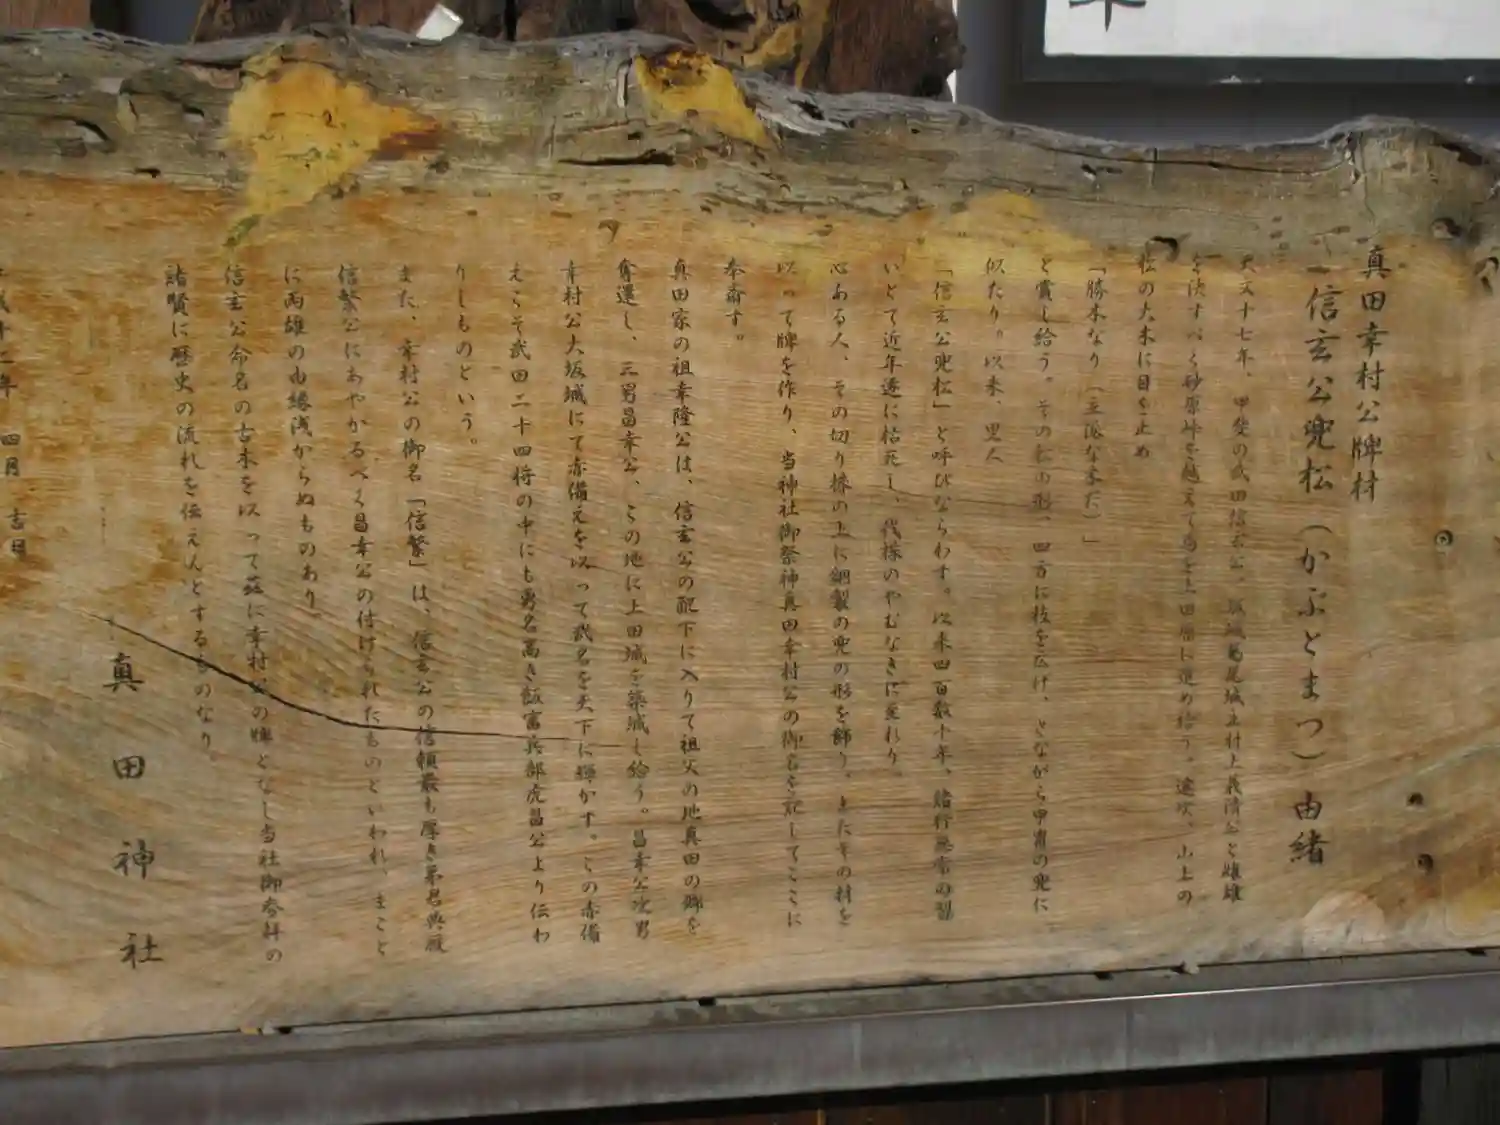 真田幸村公牌材
「信玄公兜松(かぶとまつ)由緒
天文十七年、甲斐の武田信玄公、坂城葛尾城主村上義清公と雌雄
を決すべく砂原峠を越えて馬を上田原に進め給う。途次、山上の
松の大木に目を止め
「勝木なり(立派な木だ)」
と賞し給う。その松の形、四方に枝を広げ、さながら甲冑の兜に
似たり。以来、里人
「信玄公兜松」と呼びならわす。以来四百数十年、諸行無常の習
いとて近年遂に枯死し、伐採のやむなきに至れり。
心ある人、その切り株の上に銅製の兜の形を飾り。またその材を
以って牌を作り、当神社御祭神真田幸村公の御名を記してここに
奉斎す。
真田家の祖幸隆公は、信玄公の配下に入りて祖父の地真田の郷を
奪還し、三男昌幸公、この地に上田城を築城し給う。昌幸公次男
幸村公大坂城にて赤備えを以って武名を天下に輝かす。この赤備
えこそ武田二十四将の中にも勇名高き飯富兵部虎昌公より伝わ
りしものという。
また、幸村公の御名「信繁」は、信玄公の信頼最も厚き弟君典厩
信繁公にあやかるべく昌幸公の付けられたものといわれ、まこと
に両雄の由縁浅からぬものあり
信玄公命名の古木を以って茲に幸村公の牌となし当社御参拝の
諸賢に歴史の流れを伝えんとするものなり。
成十二年 四月 吉日
真田神社